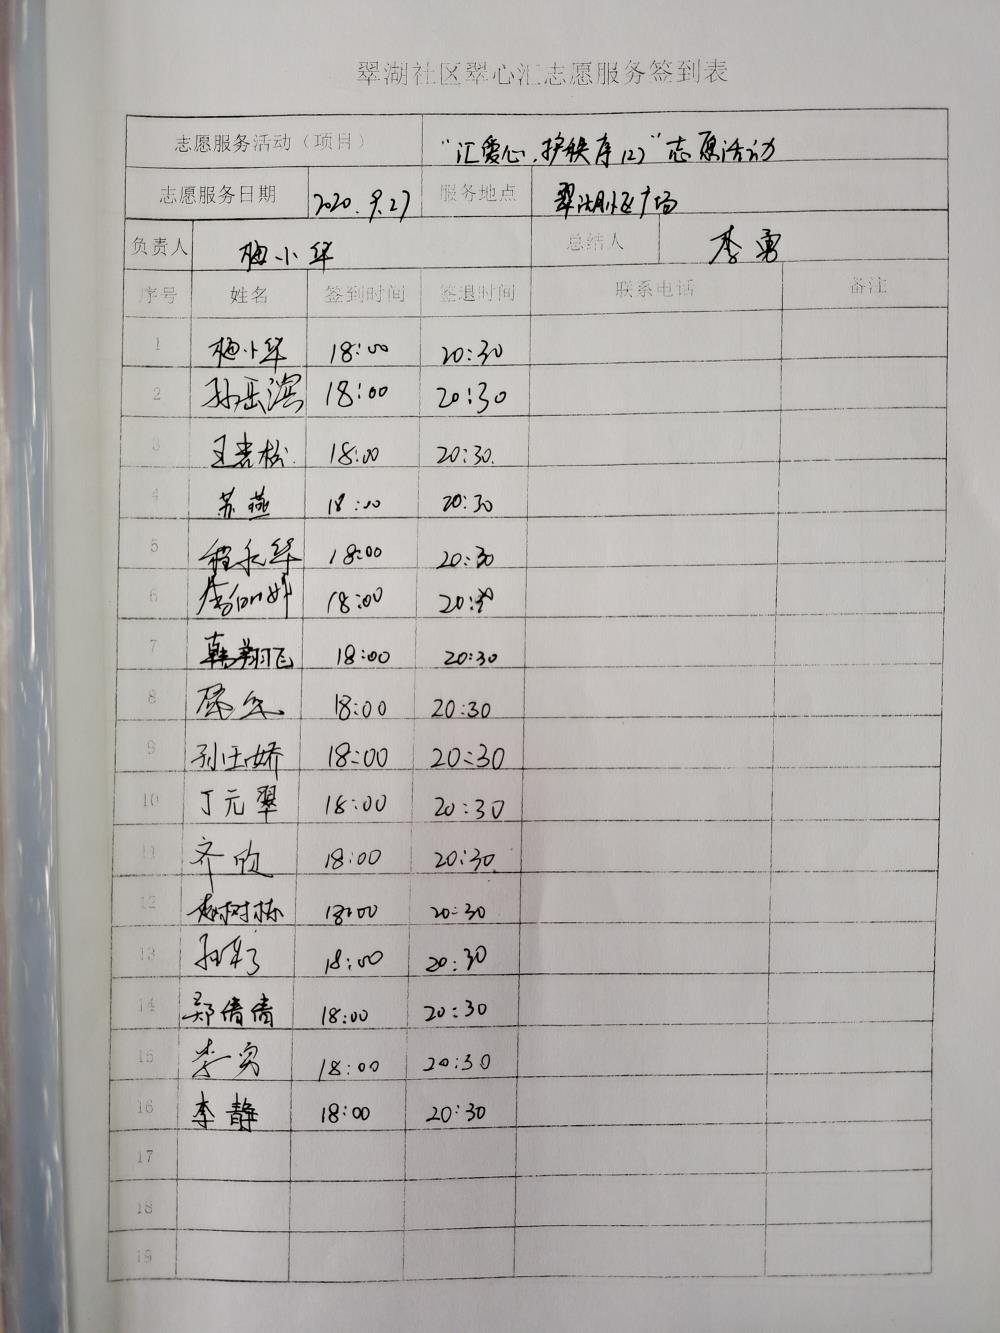 翠湖社区翠心汇志愿服务签到表
志愿服务活动（项目） “汇爱心，护秩序(2)”志愿活动
志愿服务日期 2020.9.27 服务地点 翠湖小区广场
负责人 梅小华 总结人 李勇
序号 姓名 签到时间 签退时间 联系电话 备注
1 梅小华 18:00 20:30
2 孙岳滨 18:00 20:30
3 王岩松 18:00 20:30.
4 苏燕 18:00 20:30
5 程永华 18:00 20:30
6 18:00 20:30
7 韩翔飞 18:00 20:30
8 18:00 20:30
9 孙玉娇 18:00 20:30
10 丁元翠 18:00 20:30
11 齐欣 18:00 20:30
12 赵树栋 18:00 20:30
13 18:00 20:30
14 郑倩倩 18:00 20:30
15 李实 18:00 20:30
16 李静 18:00 20:30
17
18
19